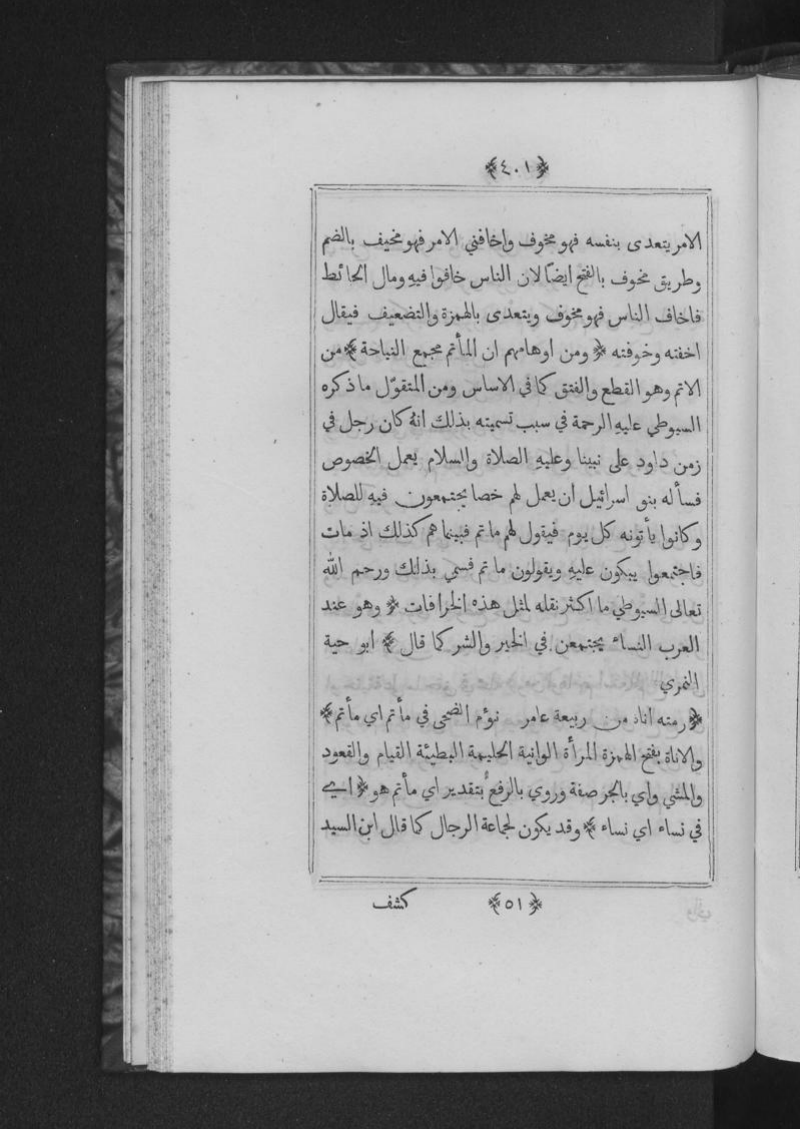 ﴿٤٠١﴾
الامر يتعدى بنفسه فهو مخوف واخافني الامر فهو مخيف بالضم
وطريق مخوف بالفتح ايضًا لان الناس خافوا فيهِ ومال الحائط
فاخاف الناس فهو مخوف ويتعدى بالهمزة والتضعيف فيقال
اخفته وخوفته ﴿ ومن اوهامهم ان المأتم مجمع النياحة ﴾ من
الاتم وهو القطع والفتق كما في الاساس ومن المتقوّل ما ذكره
السيوطي عليهِ الرحمة في سبب تسميته بذلك انهُ كان رجل في
زمن داود على نبينا وعليهِ الصلاة والسلام يعمل الخصوص
فسأله بنو اسرائيل ان يعمل لهم خصا يجتمعون فيهِ للصلاة
وكانوا يأتونه كل يوم فيقول لهم ما تم فبينما هم كذلك اذ مات
فاجتمعوا يبكون عليهِ ويقولون ما تم فسمي بذلك ورحم الله
تعالى السيوطي ما اكثر نقله لمثل هذه الخرافات ﴿ وهو عند
العرب النساء يجتمعن في الخير والشر كما قال ﴾ ابو حية
النمري
﴿ رمته اناة من ربيعة عامر نؤم الضحى في مأتم اي مأتم ﴾
والاناة بفتح الهمزة المرأة الوانية الحليمة البطيئة القيام والقعود
والمشي واي بالجر صفة وروي بالرفع بتقدير اي مأتم هو ﴿ اي
في نساء اي نساء ﴾ وقد يكون لجماعة الرجال كما قال ابن السيد
﴿٥١﴾ كشف